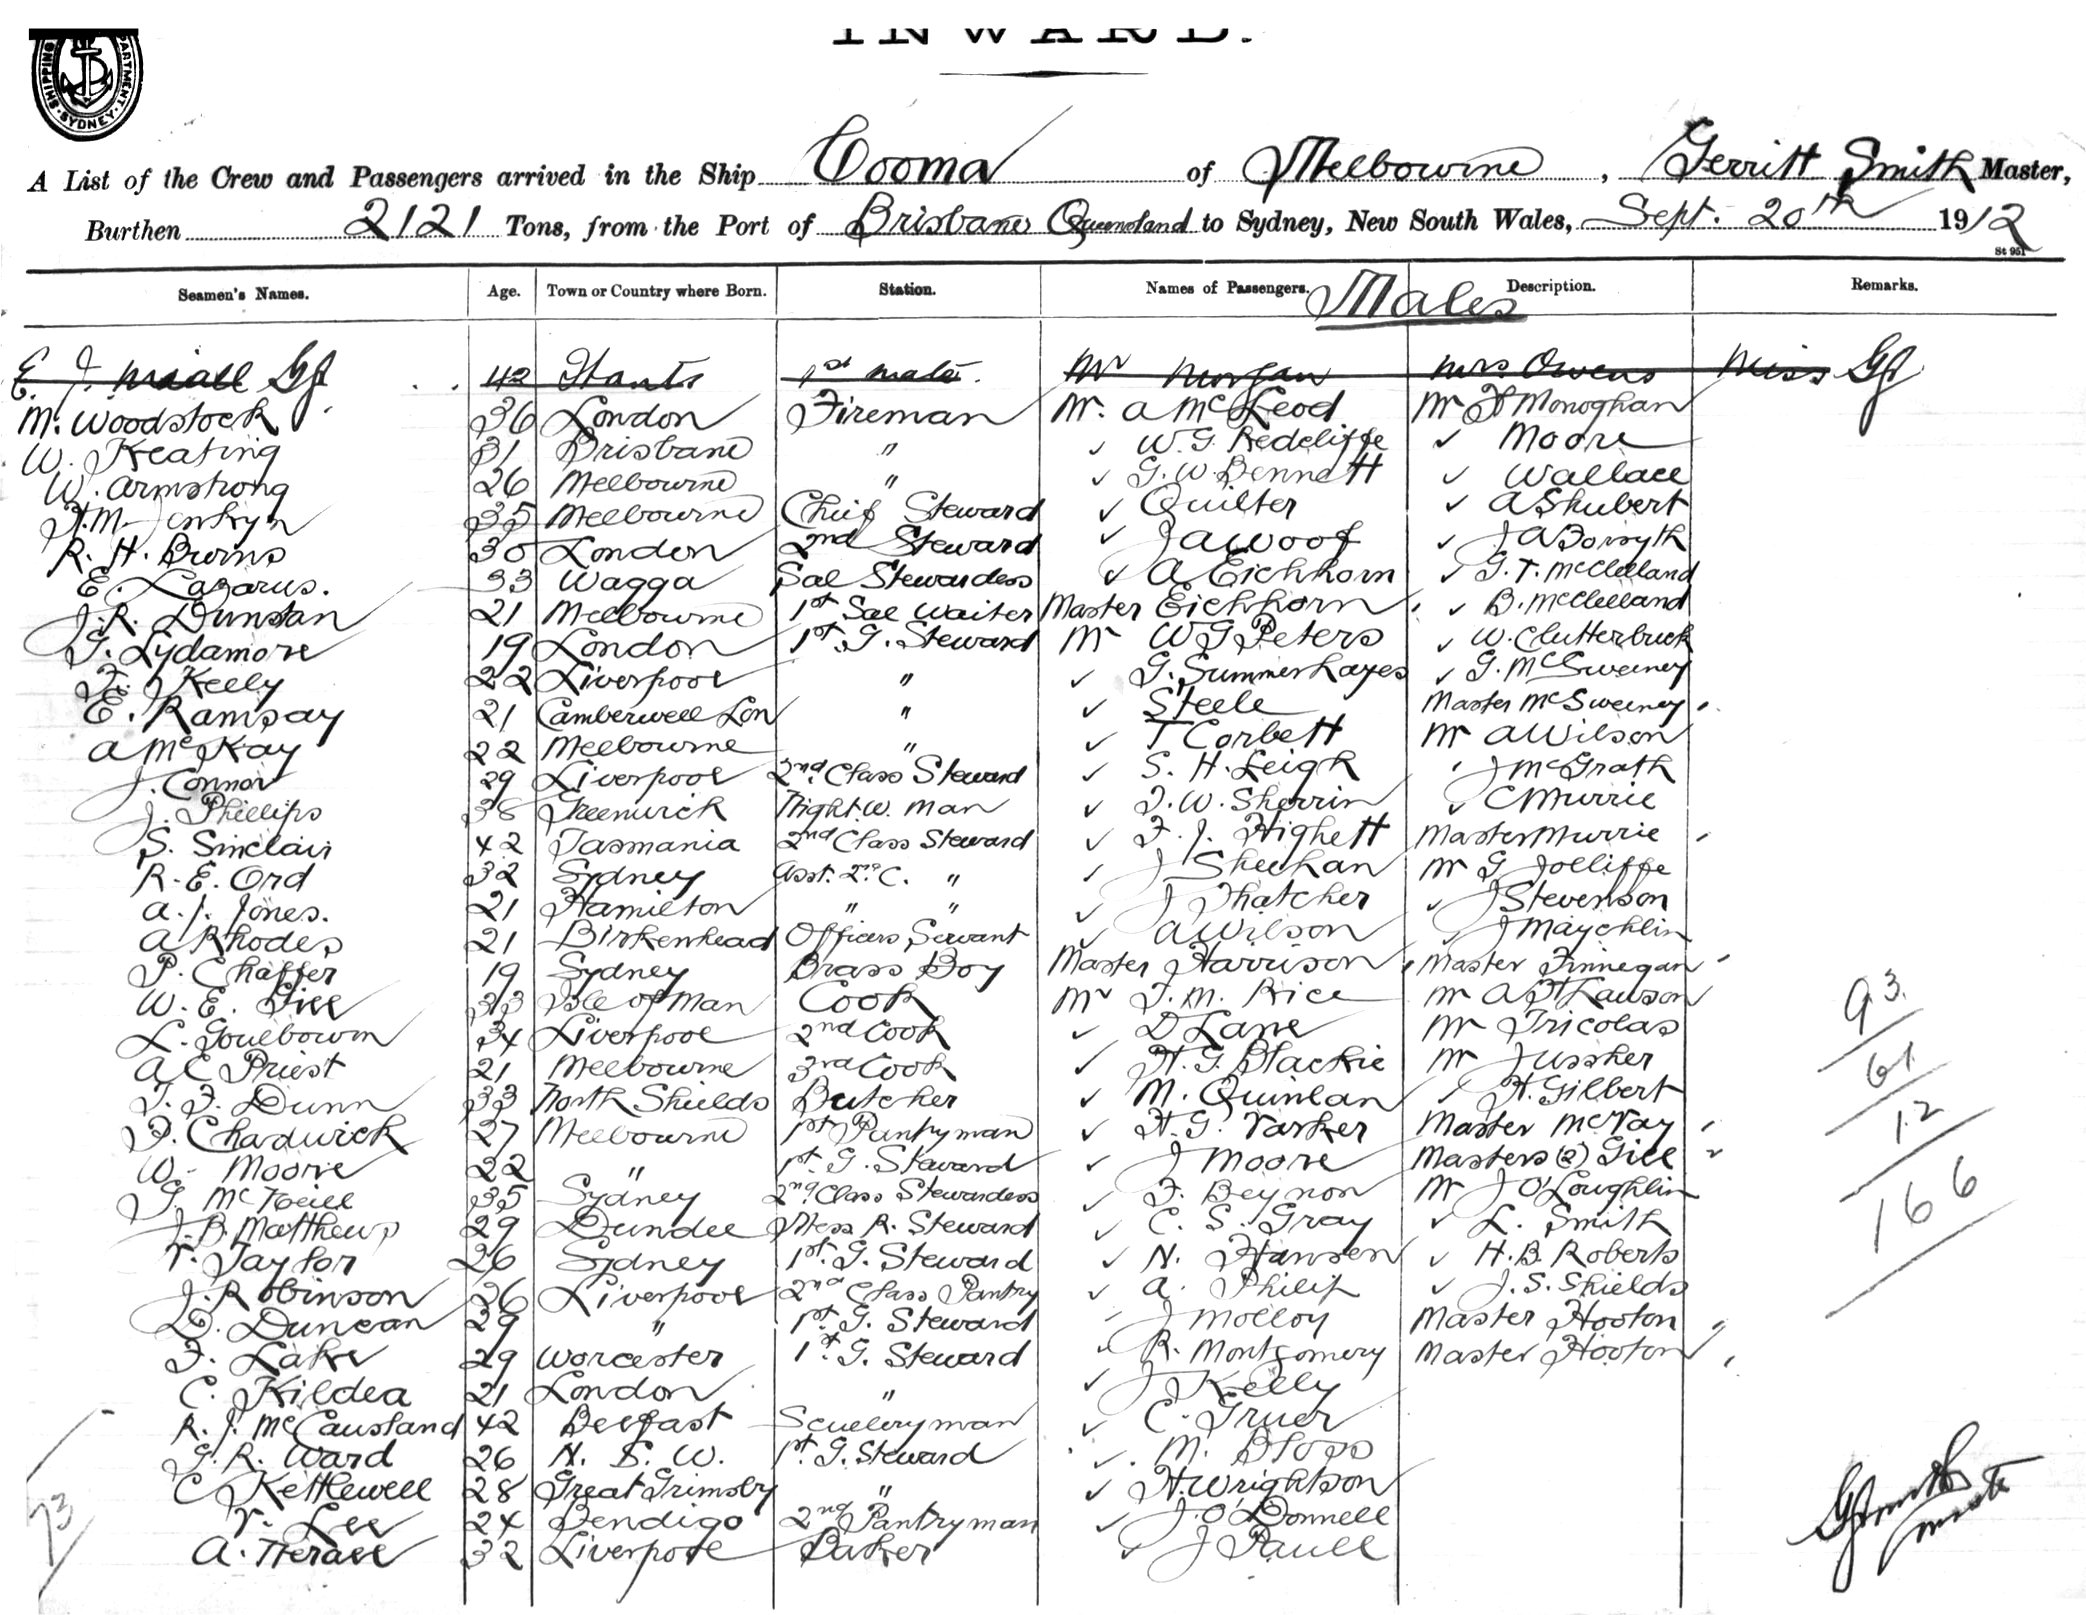 INWARD.
SHIPPING DEPARTMENT. SYDNEY
A List of the Crew and Passengers arrived in the Ship Cooma of Melbourne, Gerritt Smith Master,
Burthen 2121 Tons, from the Port of Brisbane Queensland to Sydney, New South Wales, Sept. 20th 1912
St 951
Seamen's Names. Age. Town or Country where Born. Station. Names of Passengers. Males Description. Remarks.
E. J. Niall GS 42 Hants 1st mate. Mr Morgan Mrs Owens Miss GS
M. Woodstock 36 London Fireman Mr. A McLeod Mr F Monoghan
W. Keating 31 Brisbane " ✓ W. G. Redcliffe ✓ Moore
W. Armstrong 26 Melbourne " ✓ G. W. Bennett ✓ Wallace
F. M. Jenkyn 35 Melbourne Chief Steward ✓ Quilter ✓ A Shubert
R. H. Burns 30 London 2nd Steward ✓ J A Woof ✓ J A Forsyth
E. Lazarus. 33 Wagga Sal Stewardess ✓ A Eichhorn ✓ G. T. McClelland
J. R. Dunstan 21 Melbourne 1st Sal Waiter Master Eichhorn ✓ B. McClelland
G. Lydamore 19 London 1st. G. Steward Mr W G Peters ✓ W. Clutterbuck
F. J Kelly 22 Liverpool " ✓ G. Summerhayes ✓ G. McSweeney
E. Ramsay 21 Camberwell Lon " ✓ Steele Master McSweeney
A McKay 22 Melbourne " ✓ T Corbett Mr A Wilson
J. Connor 29 Liverpool 2nd Class Steward ✓ S. H. Leigh J McGrath
J. Phillips 38 Greenwick Night. W. Man ✓ J. W. Sherrin ✓ C Murrie
S. Sinclair 42 Tasmania 2nd Class Steward ✓ F. J. Highett Master Murrie
R. E. Ord 32 Sydney Asst. 2nd C. " ✓ J Sheehan Mr G Jolliffe
A. J. Jones. 21 Hamilton " " ✓ J Thatcher ✓ J Stevenson
A Rhodes 21 Birkenhead Officers Servant ✓ A Wilson ✓ J Maychlin
P. Chaffer 19 Sydney Brass Boy Master Harrison Master Finnegan
W. E. Gill 33 Isle of Man Cook Mr F. M. Rice Mr A F Lawson 93.
L. Goulbourn 34 Liverpool 2nd Cook ✓ D Lane Mr Tricolas
A C Priest 21 Melbourne 3rd Cook ✓ H. G. Blackie Mr Jussher 61
T. F. Dunn 33 North Shields Butcher ✓ M. Quinlan ✓ H. Gilbert
F. Chadwick 27 Melbourne 1st Pantryman ✓ H. G. Varker Master McVay 12
W. Moore 22 " 1st. G. Steward ✓ J Moore Masters (2) Gill
G. McNeill 35 Sydney 2nd Class Stewardess ✓ F. Beynon Mr J O'Loughlin 166
J. B. Matthews 29 Dundee Mess R. Steward ✓ C. S. Gray ✓ L. Smith
V. Taylor 26 Sydney 1st. G. Steward ✓ N. Hansen ✓ H. B. Roberts
J. Robinson 26 Liverpool 2nd Class Pantry ✓ A. Philip ✓ J. S. Shields
D. Duncan 29 " 1st. G. Steward J Molloy Master Hooton
F. Lake 29 Worcester 1st. G. Steward R. Montgomery Master Hooton
C. Kildea 21 London " ✓ J Kelly
R. J. McCausland 42 Belfast Sculleryman ✓ C. Gruer
G. R. Ward 26 N. S. W. 1st. G. Steward ✓ M. Bloss
C Kettlewell 28 Great Grimsby " ✓ H. Wrightson
V. Lee 24 Bendigo 2nd Pantryman ✓ J. O'Donnell
A. 32 Liverpool Baker ✓ J Paull
73
G Smith